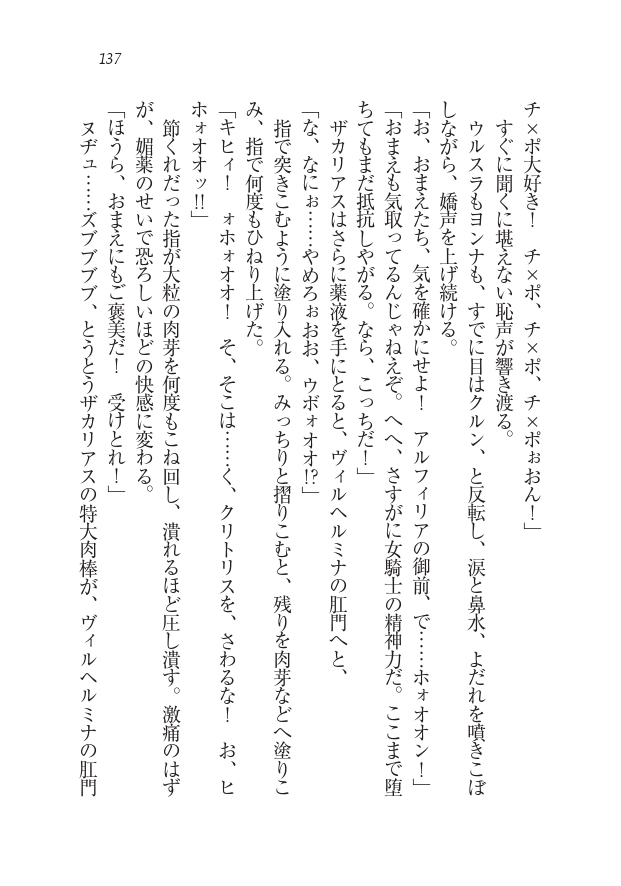 137
チ×ポ大好き！　チ×ポ、チ×ポ、チ×ポぉおん！」
　すぐに聞くに堪えない恥声が響き渡る。
　ウルスラもヨンナも、すでに目はクルン、と反転し、涙と鼻水、よだれを噴きこぼ
しながら、嬌声を上げ続ける。
「お、おまえたち、気を確かにせよ！　アルフィリアの御前、で……ホォオオン！」
「おまえも気取ってるんじゃねえぞ。へへ、さすがに女騎士の精神力だ。ここまで堕
ちてもまだ抵抗しやがる。なら、こっちだ！」
　ザカリアスはさらに薬液を手にとると、ヴィルヘルミナの肛門へと、
「な、なにぉ……やめろぉおお、ウボォオオ!?」
　指で突きこむように塗り入れる。みっちりと摺りこむと、残りを肉芽などへ塗りこ
み、指で何度もひねり上げた。
「キヒィ！　ォホォオオ！　そ、そこは……く、クリトリスを、さわるな！　お、ヒ
ホォオオッ!!」
　節くれだった指が大粒の肉芽を何度もこね回し、潰れるほど圧し潰す。激痛のはず
が、媚薬のせいで恐ろしいほどの快感に変わる。
「ほうら、おまえにもご褒美だ！　受けとれ！」
　ヌヂュ……ズブブブブ、とうとうザカリアスの特大肉棒が、ヴィルヘルミナの肛門